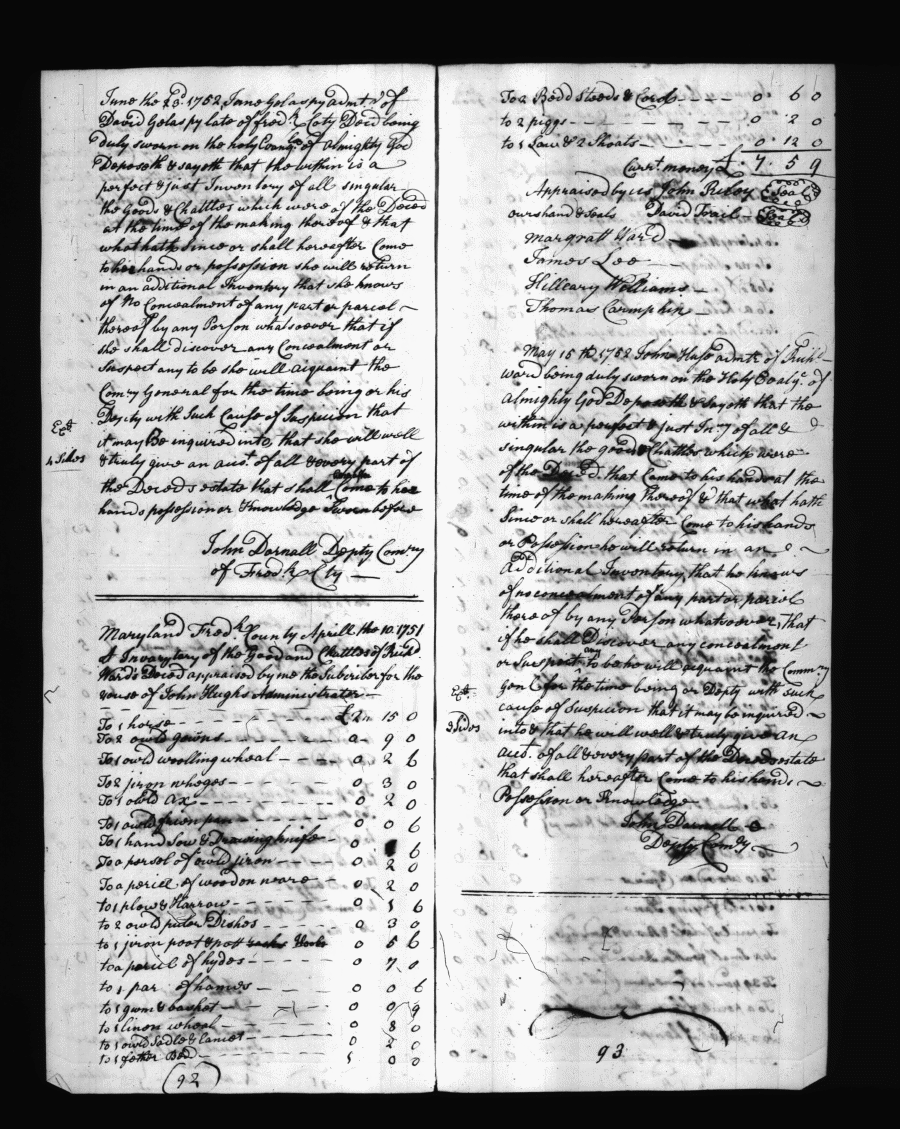 June the 23d. 1752 Jane Gelaspy admt. of
David Gelaspy late of fredk. Coty Decd being
duly sworn on the holy Evangs. of almighty God
Deposeth & sayeth that the within is a
perfect & just Inventory of all singular
the goods & Chattles which were of the Deced
at the time of the making thereof & that
what hath Since or shall hereafter Come
to her hands or possession she will return
in an additional Inventory that she knows
of no Concealment of any part or parcel
thereof by any Person whatsoever that if
she shall discover any Concealment or
Suspect any to be she will acquaint the
Comry General for the time being or his
Depty with such Cause of Suspicion that
it may Be inquired into, that she will well
& truly give an acct. of all & every part of
the Deceds estate that shall Come to her
hands possession or Knowledge Sworn before
John Darnall Depty Comry
of Fredk. Cty
Exd
4 Sides
Maryland Fredk. County Aprill the 10. 1751
A Invantary of the Good and Chattles of Richd.
Wards Deced appraised by me the Subcriber for the
youse of John Hughs Administrater
To 1 horse £ 2 15 0
To 2 owld gowns 9 0
To 1 owld woolling wheal 0 2 6
To 2 jiron whoges 0 3 0
To 1 owld ax 0 2 0
To 1 owld friion pan 0 0 6
To 1 hand Sow & Drawing knife 0 6
To a persol of owld jiron 0 2 0
To a percill of wooden ware 0 2 0
to 1 plow & Harrow 0 5 6
to 2 owld puter Dishes 0 3 0
to 1 jiron poot & pott Hooks 0 5 6
to a percil of hydes 0 7 0
to 1 par of hames 0 0 6
to 1 gwn & basket 0 0 9
to 1 linon wheal 0 8 0
to 1 owld Sadle & 0 2 0
to 1 fether Bed 1 0 0
(92)
To 2 Bedd Steeds & Cords 0 6 0
to 2 piggs 0 2 0
to 1 Sow & 2 Shoats 0 12 0
Currt. money £ 7. 5 9
Appraised by us John Riley Seal
ours hand & Seals David Trail Seal
Margratt Ward
James Lee
Hilleary Williams
Thomas Carmphin
May 15th 1752 John Hughs admtr. of Richd.
ward being duly sworn on the Holy Evalgs. of
almighty God Deposeth & Sayeth that the
within is a perfect & just Invy of all &
singular the goods & Chattles which were
of the Deced. that Came to his hands at the
time of the making thereof & that what hath
Since or shall hereafter Come to his hands
or Possession he will return in an
Additional Inventory, that he knows
of no concealment of any part or parcel
thereof by any Person whatsoever, that
if he shall Discover any concealment
or Suspect any to be he will acquaint the Commry
Genl for the time being or Depty with such
cause of Suspicion that it may be inquired
into & that he will well & truly give an
acct. of all & every part of the Deceds estate
that shall hereafter Come to his hands
Possession or Knowledge
John Darnall
Depty Comry
Exd.
3 Sides
93